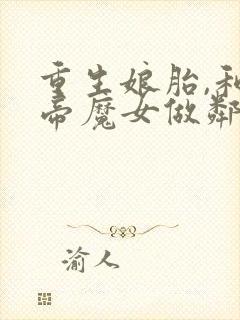 重生娘胎,和
帝魔女做鄰
渝人